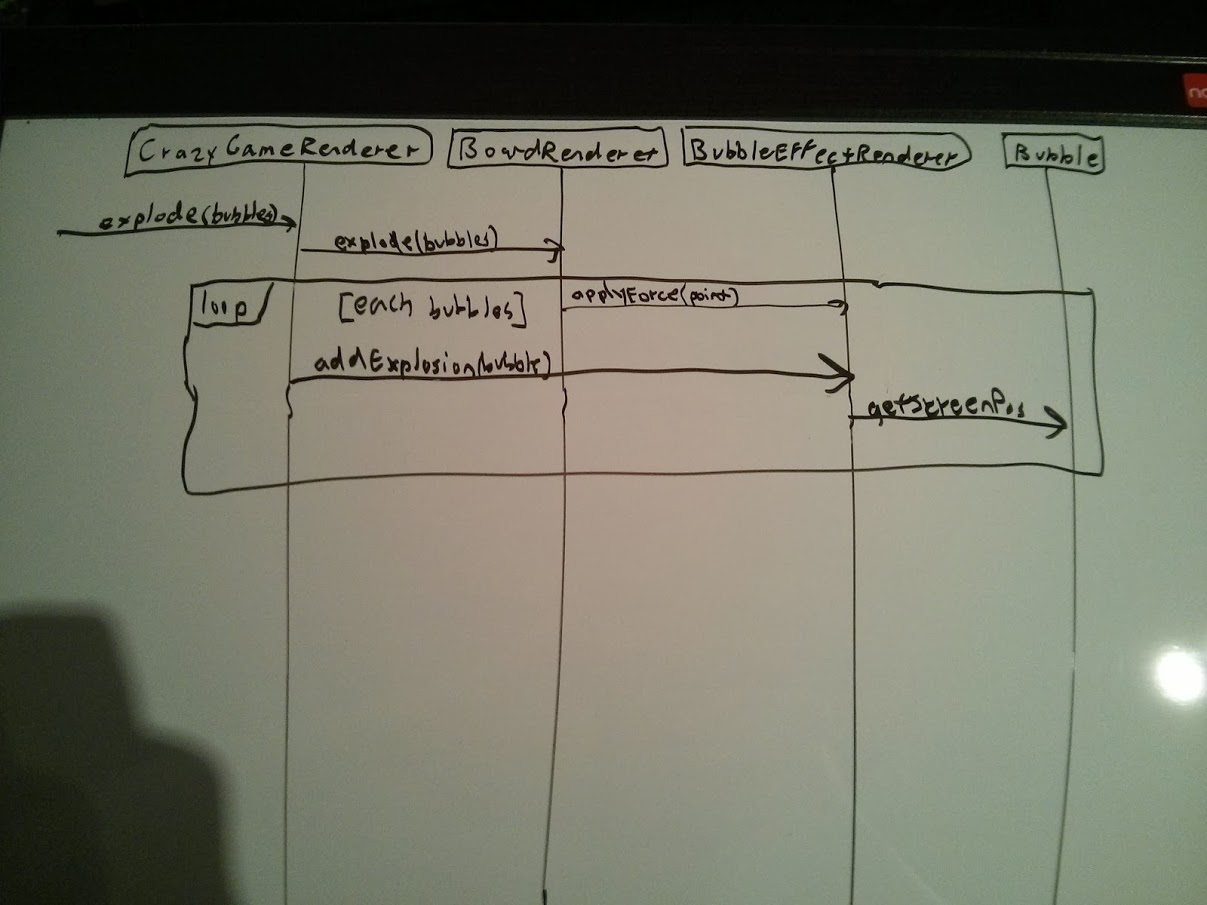 CrazyGameRenderer
BoardRenderer
BubbleEffectRenderer
Bubble
explode(bubbles)
explode(bubbles)
loop
[each bubbles]
applyForce(point)
addExplosion(bubble)
getScreenPos